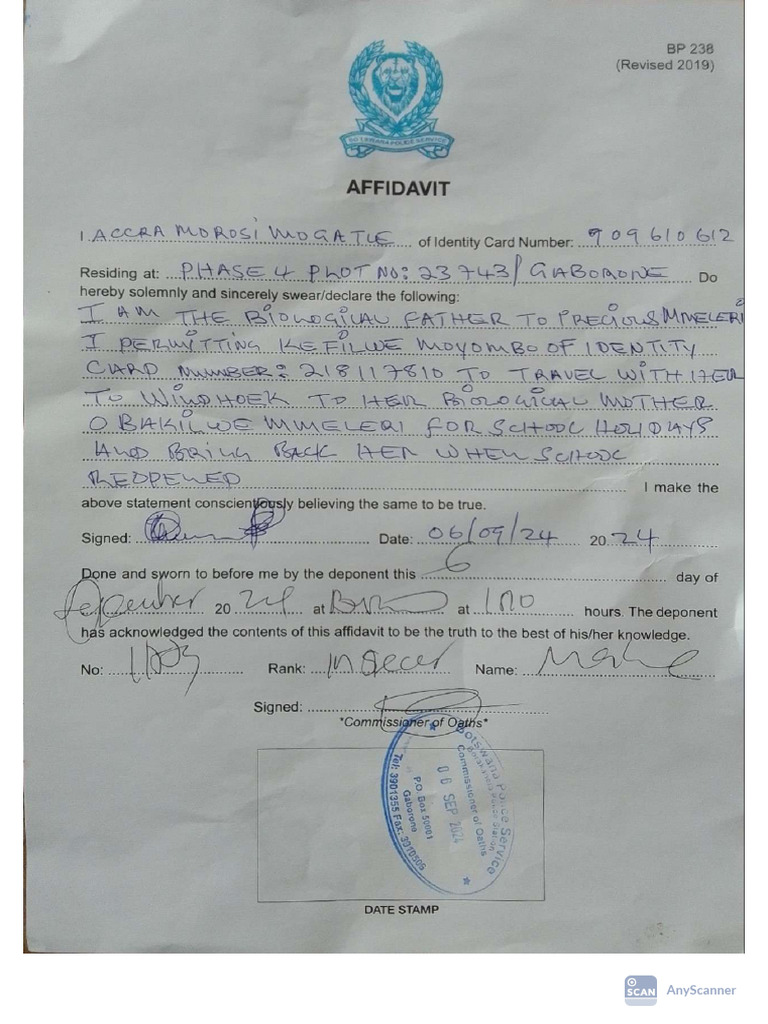 BP 238
(Revised 2019)
BOTSWANA POLICE SERVICE
AFFIDAVIT
I ACCRA MOROSI MOGATLE of Identity Card Number: 909610612
Residing at: PHASE 4 PLOT NO: 23743/ GABORONE Do
hereby solemnly and sincerely swear/declare the following:
I AM THE BIOLOGICAL FATHER TO PRECIOUS MMELERI
I PERMITTING KEFILWE MOYOMBO OF IDENTITY
CARD NUMBER: 218117810 TO TRAVEL WITH HER
TO WINDHOEK TO HER BIOLOGICAL MOTHER
OBAKILWE MMELERI FOR SCHOOL HOLIDAYS
AND BRING BACK HER WHEN SCHOOL
REOPENED I make the
above statement conscientiously believing the same to be true.
Signed: Date: 06/09/24 20 24
Done and sworn to before me by the deponent this 6 day of
September 20 24 at at hours. The deponent
has acknowledged the contents of this affidavit to be the truth to the best of his/her knowledge.
No: Rank: Name:
Signed:
*Commissioner of Oaths*
Botswana Police Service
Police Station
Commissioner of Oaths
06 SEP 2024
P.O. Box 50001
Gaborone
Tel: 3901355 Fax: 3910505
DATE STAMP
SCAN AnyScanner